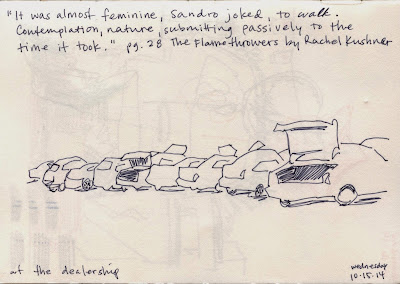 "It was almost feminine, Sandro joked, to walk.
Contemplation, nature, submitting passively to the
time it took." pg. 28 The Flamethrowers by Rachel Kushner
at the dealership
wednesday
10.15.14